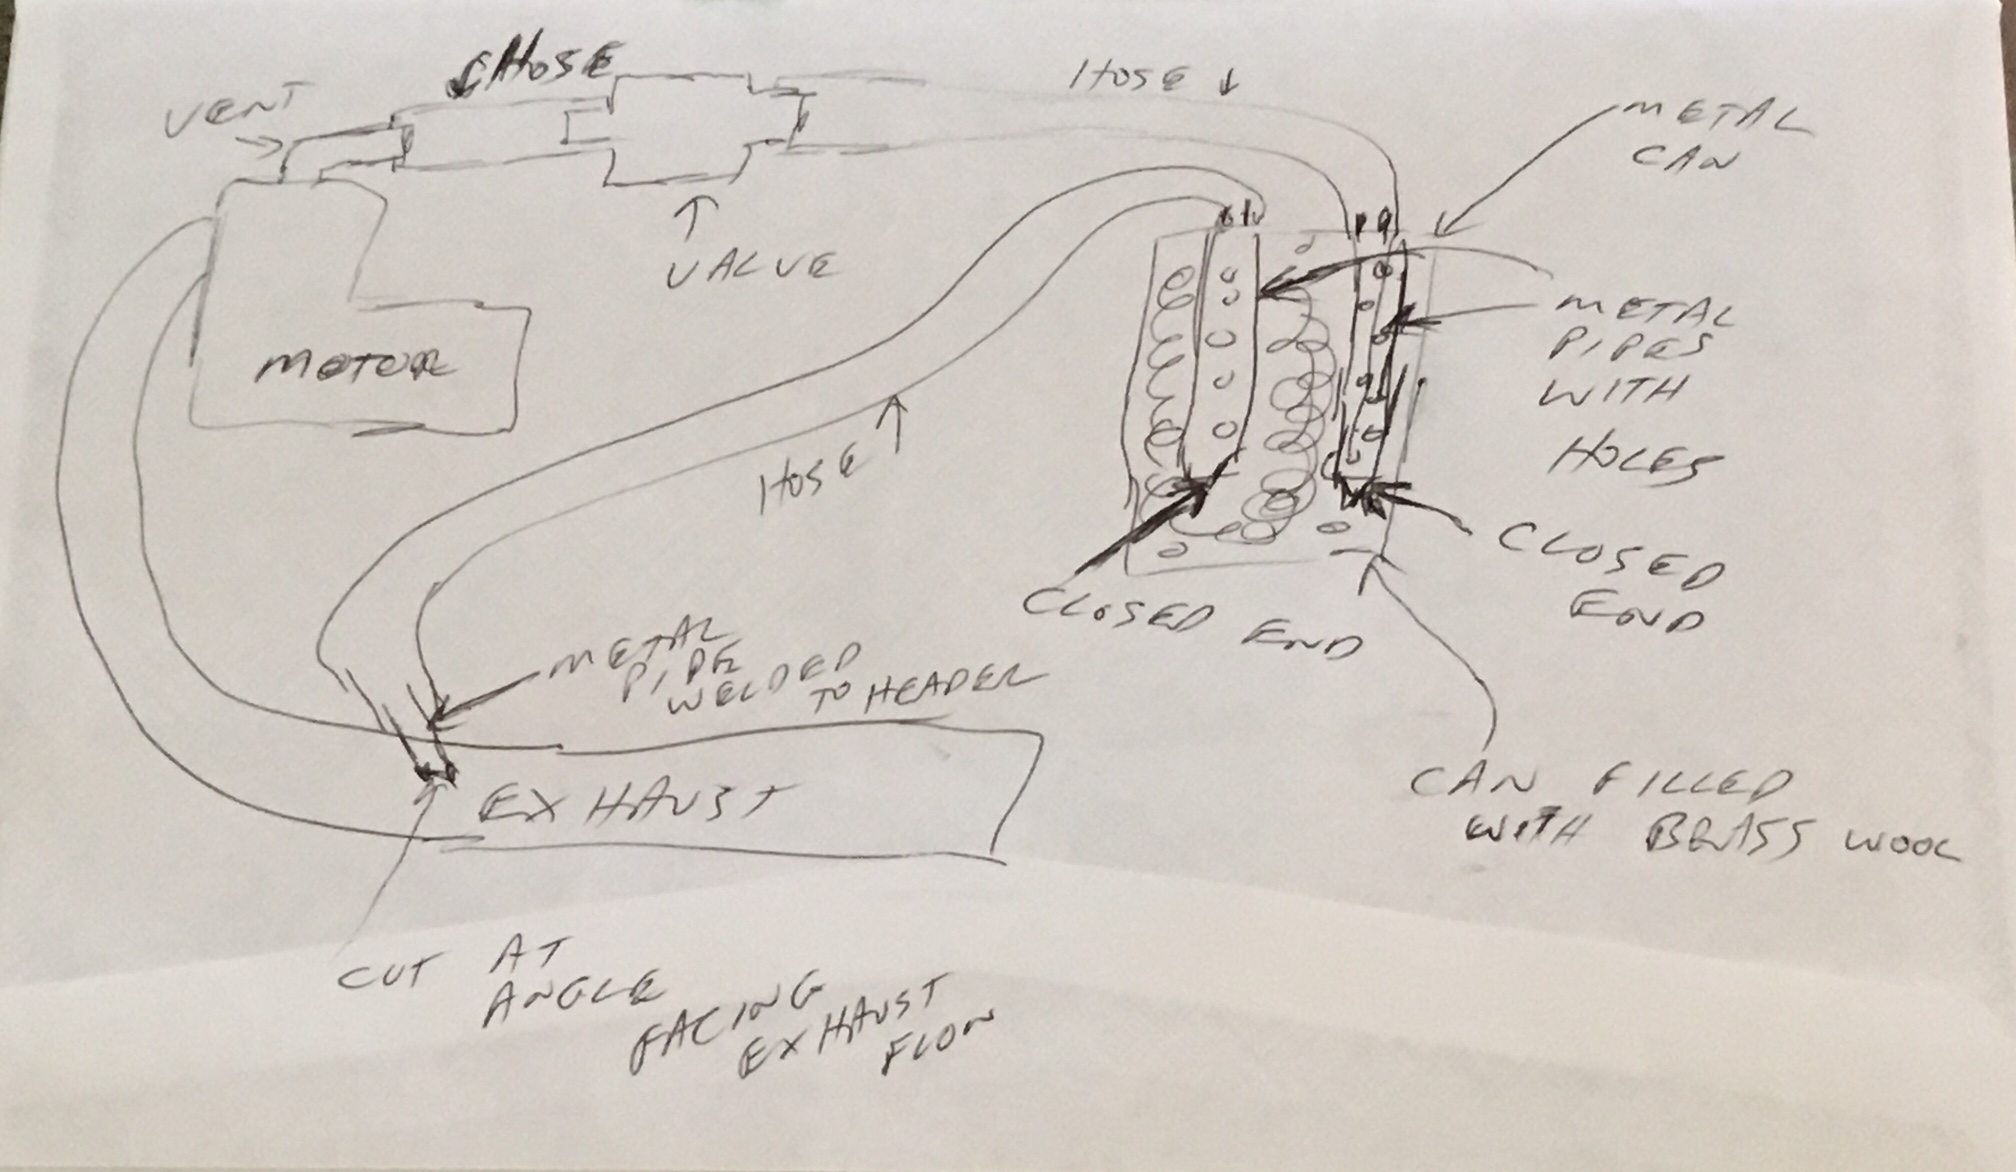 HOSE
VENT
HOSE
METAL
CAN
VALVE
MOTOR
METAL
PIPES
WITH
HOLES
HOSE
CLOSED
END
CLOSED END
METAL
PIPE
WELDED
TO HEADER
EXHAUST
CAN FILLED
WITH BRASS WOOL
CUT AT
ANGLE
FACING
EXHAUST
FLOW